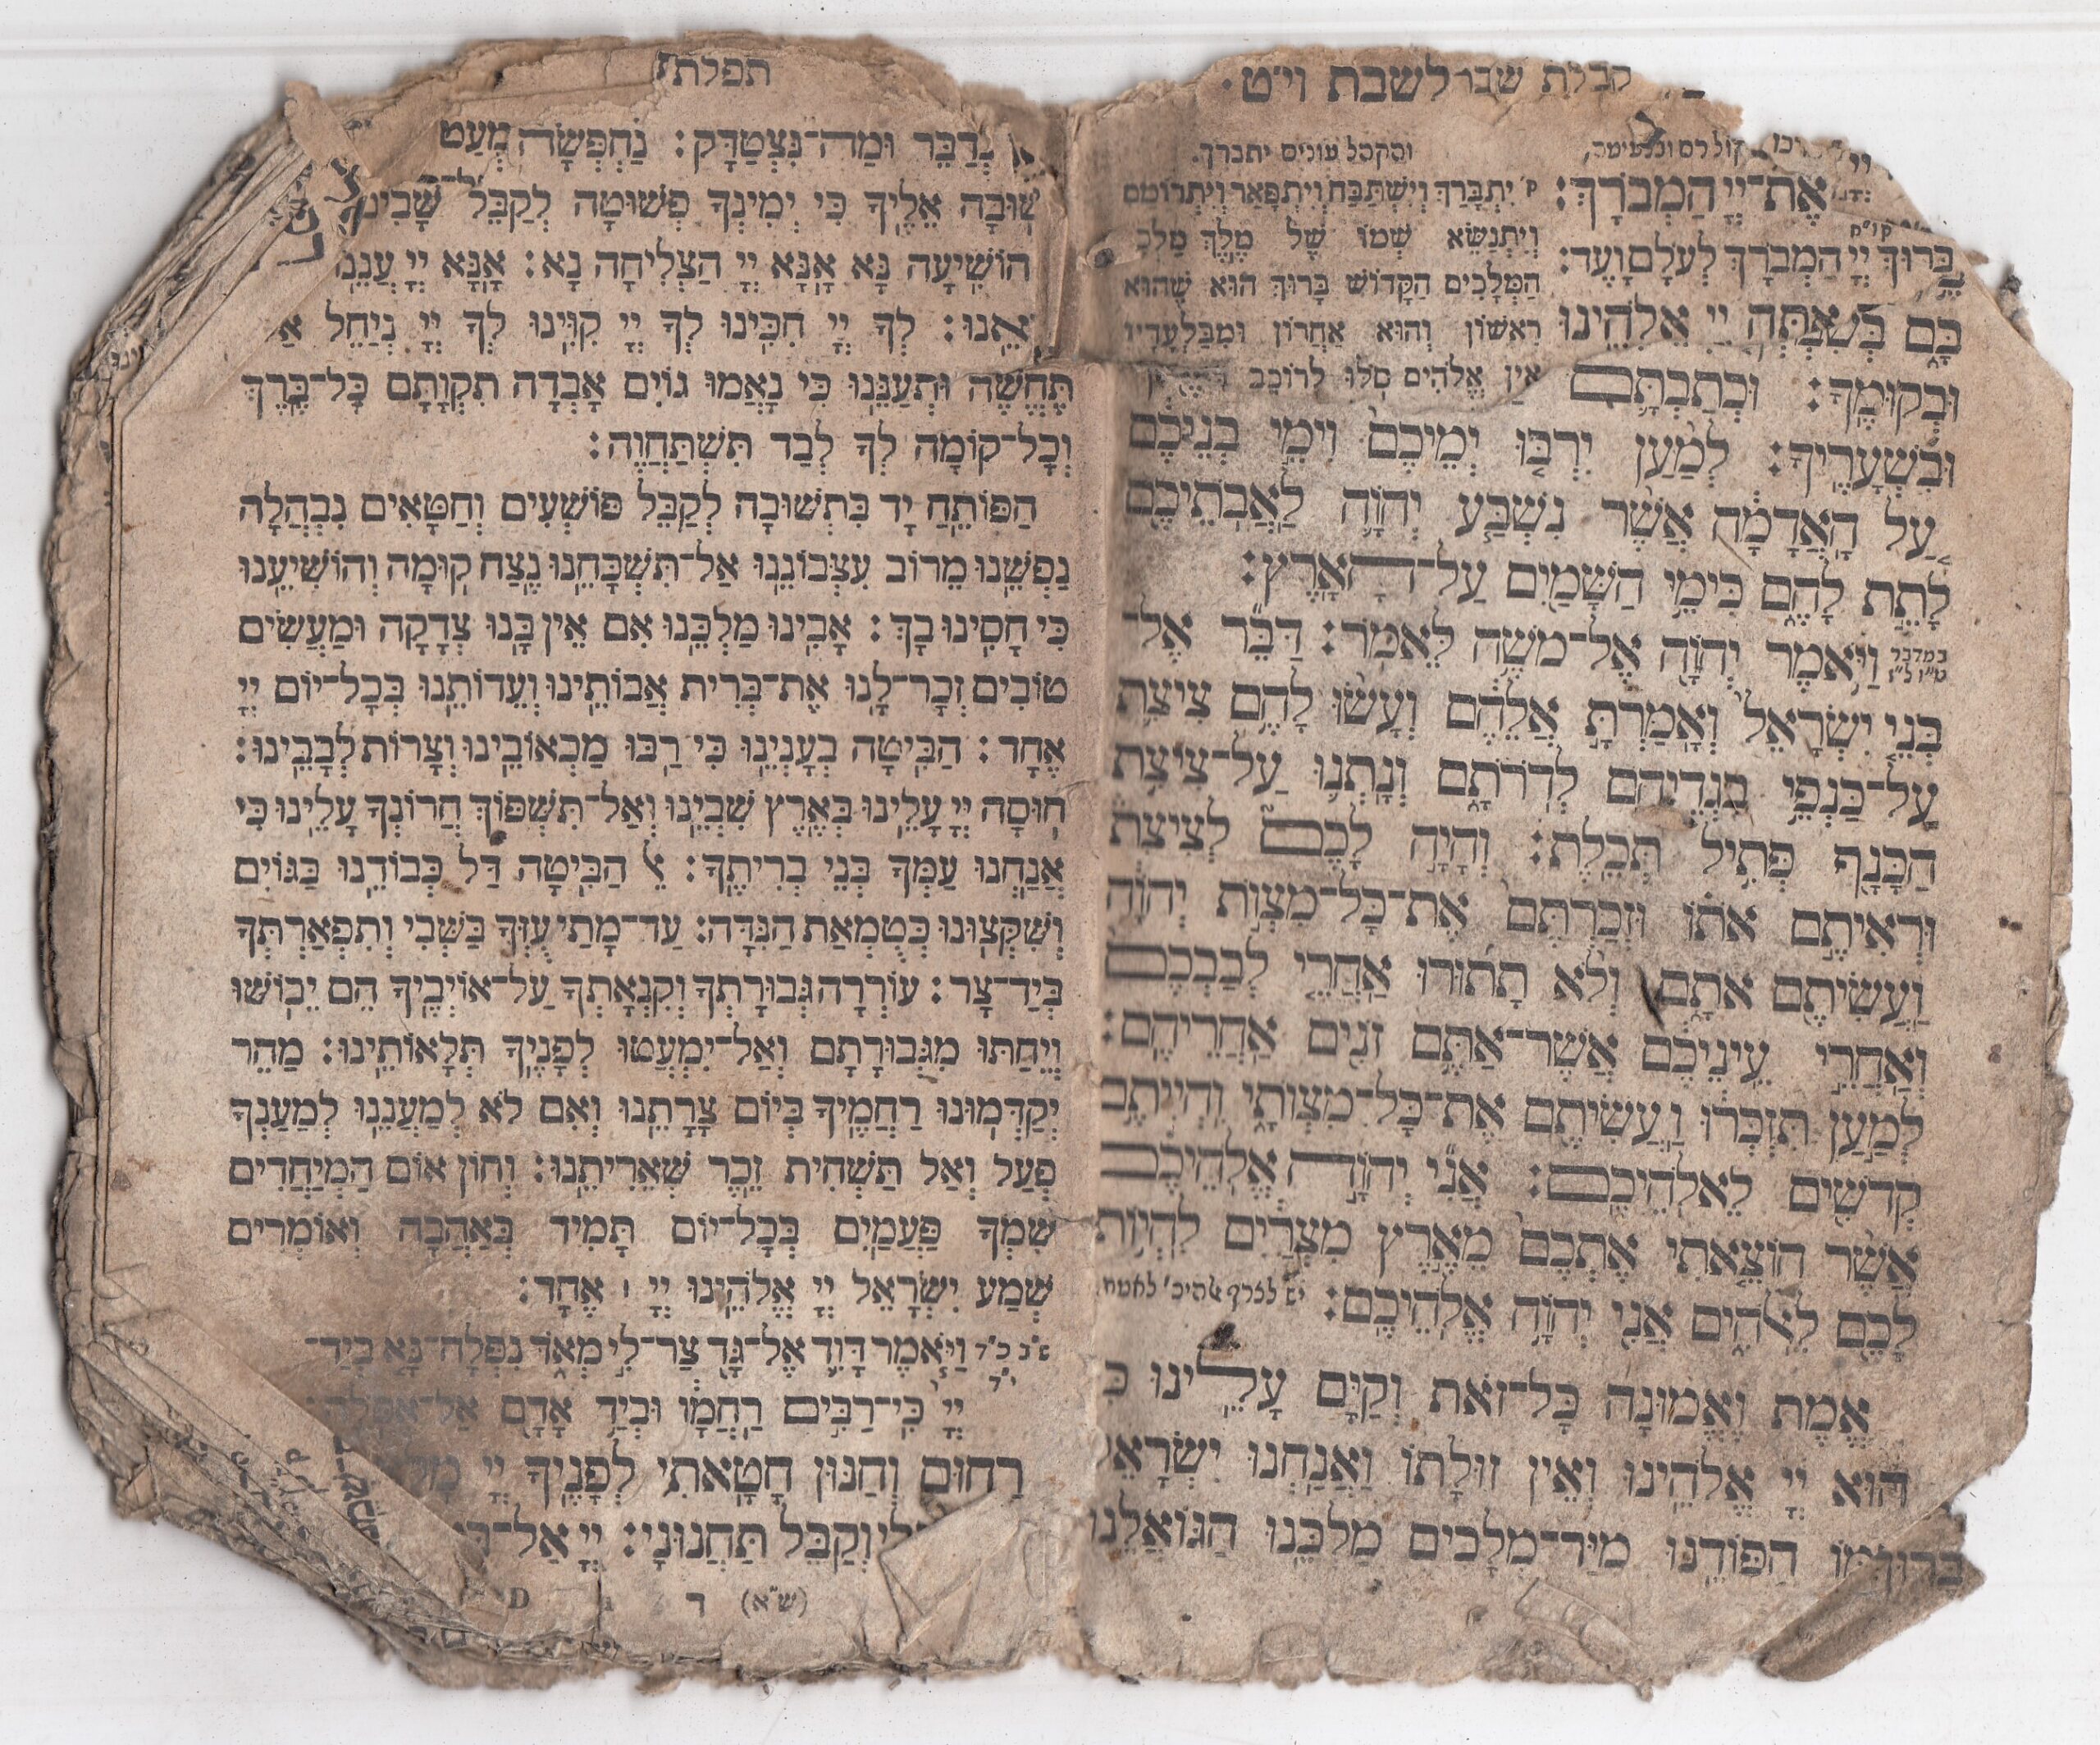 קבלת שבת לשבת וי״ט ·
והקהל עונים יתברך.
אֶת־יְיָ הַמְבֹרָךְ:
יִתְבָּרַךְ וְיִשְׁתַּבַּח וְיִתְפָּאַר וְיִתְרוֹמַם
וְיִתְנַשֵּׂא שְׁמוֹ שֶׁל מֶלֶךְ מַלְכֵי
בָּרוּךְ יְיָ הַמְבֹרָךְ לְעוֹלָם וָעֶד:
הַמְּלָכִים הַקָּדוֹשׁ בָּרוּךְ הוּא שֶׁהוּא
רִאשׁוֹן וְהוּא אַחֲרוֹן וּמִבַּלְעָדָיו
אֵין אֱלֹהִים סֹלּוּ לָרוֹכֵב
וּבְקוּמֶךָ: וּכְתַבְתָּם
וּבִשְׁעָרֶיךָ: לְמַעַן יִרְבּוּ יְמֵיכֶם וִימֵי בְנֵיכֶם
עַל הָאֲדָמָה אֲשֶׁר נִשְׁבַּע יְהוָֹה לַאֲבֹתֵיכֶם
לָתֵת לָהֶם כִּימֵי הַשָּׁמַיִם עַל־הָאָרֶץ:
במדבר
ט״ו ל״ז
וַיֹּאמֶר יְהוָֹה אֶל־משֶׁה לֵּאמֹר: דַּבֵּר אֶל־
בְּנֵי יִשְׂרָאֵל וְאָמַרְתָּ אֲלֵהֶם וְעָשׂוּ לָהֶם צִיצִת
עַל־כַּנְפֵי בִגְדֵיהֶם לְדֹרֹתָם וְנָתְנוּ עַל־צִיצִת
הַכָּנָף פְּתִיל תְּכֵלֶת: וְהָיָה לָכֶם לְצִיצִת
וּרְאִיתֶם אֹתוֹ וּזְכַרְתֶּם אֶת־כָּל־מִצְוֹת יְהוָֹה
וַעֲשִׂיתֶם אֹתָם וְלֹא תָתוּרוּ אַחֲרֵי לְבַבְכֶם
וְאַחֲרֵי עֵינֵיכֶם אֲשֶׁר־אַתֶּם זֹנִים אַחֲרֵיהֶם:
לְמַעַן תִּזְכְּרוּ וַעֲשִׂיתֶם אֶת־כָּל־מִצְוֹתָי וִהְיִיתֶם
קְדשִׁים לֵאלֹהֵיכֶם: אֲנִי יְהוָֹה אֱלֹהֵיכֶם
אֲשֶׁר הוֹצֵאתִי אֶתְכֶם מֵאֶרֶץ מִצְרַיִם לִהְיוֹת
לָכֶם לֵאלֹהִים אֲנִי יְהוָֹה אֱלֹהֵיכֶם:
אֱמֶת וֶאֱמוּנָה כָּל־זֹאת וְקַיָּם עָלֵינוּ כִּ
הוּא יְיָ אֱלֹהֵינוּ וְאֵין זוּלָתוֹ וַאֲנַחְנוּ יִשְׂרָאֵל
הַפּוֹדֵנוּ מִיַּד־מְלָכִים מַלְכֵּנוּ הַגּוֹאֲלֵנוּ
תפלת
נְדַבֵּר וּמַה־נִּצְטַדָּק: נַחְפְּשָׂה
אֵלֶיךָ כִּי יְמִינְךָ פְשׁוּטָה לְקַבֵּל שָׁבִים
הוֹשִׁיעָה נָּא אָנָּא יְיָ הַצְלִיחָה נָא: אָנָּא יְיָ עֲנֵנוּ
לְךָ יְיָ חִכִּינוּ לְךָ יְיָ קִוִּינוּ לְךָ יְיָ נְיַחֵל
תֶּחֱשֶׁה וּתְעַנֵּנוּ כִּי נָאֲמוּ גוֹיִם אָבְדָה תִקְוָתָם כָּל־בֶּרֶךְ
וְכָל־קוֹמָה לְךָ לְבַד תִּשְׁתַּחֲוֶה:
הַפּוֹתֵחַ יָד בִּתְשׁוּבָה לְקַבֵּל פּוֹשְׁעִים וְחַטָּאִים נִבְהֲלָה
נַפְשֵׁנוּ מֵרוֹב עִצְבוֹנֵנוּ אַל־תִּשְׁכָּחֵנוּ נֶצַח קוּמָה וְהוֹשִׁיעֵנוּ
כִּי חָסִינוּ בָךְ: אָבִינוּ מַלְכֵּנוּ אִם אֵין בָּנוּ צְדָקָה וּמַעֲשִׂים
טוֹבִים זְכָר־לָנוּ אֶת־בְּרִית אֲבוֹתֵינוּ וְעֵדוֹתֵנוּ בְּכָל־יוֹם יְיָ
אֶחָד: הַבִּיטָה בְעָנְיֵנוּ כִּי רַבּוּ מַכְאוֹבֵינוּ וְצָרוֹת לְבָבֵינוּ:
חוּסָה יְיָ עָלֵינוּ בְּאֶרֶץ שִׁבְיֵנוּ וְאַל־תִּשְׁפּוֹךְ חֲרוֹנְךָ עָלֵינוּ כִּי
אֲנַחְנוּ עַמְּךָ בְּנֵי בְרִיתֶךָ: אֵל הַבִּיטָה דַּל כְּבוֹדֵנוּ בַּגּוֹיִם
וְשִׁקְּצוּנוּ כְּטֻמְאַת הַנִּדָּה: עַד־מָתַי עֻזְּךָ בַּשְּׁבִי וְתִפְאַרְתְּךָ
בְּיַד־צָר: עוֹרְרָה גְּבוּרָתְךָ וְקִנְאָתְךָ עַל־אוֹיְבֶיךָ הֵם יֵבוֹשׁוּ
וְיֵחַתּוּ מִגְּבוּרָתָם וְאַל־יִמְעֲטוּ לְפָנֶיךָ תְּלָאוֹתֵינוּ: מַהֵר
יְקַדְּמוּנוּ רַחֲמֶיךָ בְּיוֹם צָרָתֵנוּ וְאִם לֹא לְמַעֲנֵנוּ לְמַעַנְךָ
פְעַל וְאַל תַּשְׁחִית זֵכֶר שְׁאֵרִיתֵנוּ: וְחוֹן אוֹם הַמְיַחֲדִים
שִׁמְךָ פַּעֲמַיִם בְּכָל־יוֹם תָּמִיד בְּאַהֲבָה וְאוֹמְרִים
שְׁמַע יִשְׂרָאֵל יְיָ אֱלֹהֵינוּ יְיָ ׀ אֶחָד:
וַיֹּאמֶר דָּוִד אֶל־גָּד צַר־לִי מְאֹד נִפְּלָה־נָּא בְיַד־
יְיָ כִּי־רַבִּים רַחֲמָו וּבְיַד אָדָם אַל־אֶפֹּלָה:
רַחוּם וְחַנּוּן חָטָאתִי לְפָנֶיךָ יְיָ
וְקַבֵּל תַּחֲנוּנָי: יְיָ אַל־
(ש״א) ד D